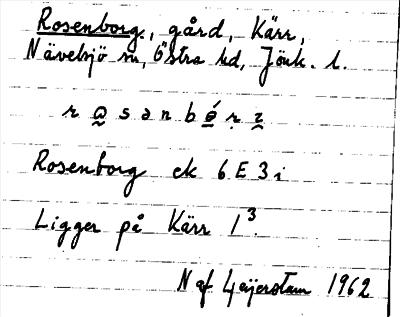 Rosenborg, gård, Kärr,
Nävelsjö sn, Östra hd, Jönk. l.
Rosenborg ek 6 E 3 i
Ligger på Kärr 1³.
N af Geijerstam 1962